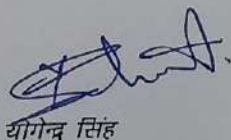 योगेन्द्र सिंह